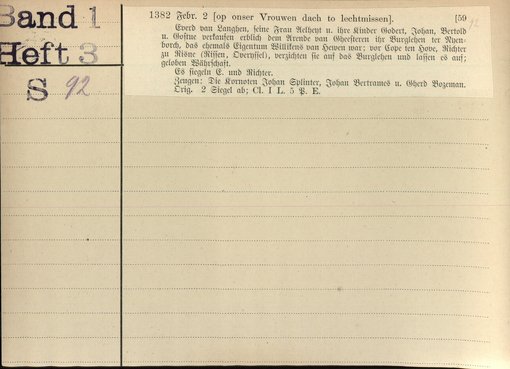 Band 1
Heft 3
S 92
1382 Febr. 2 [op onser Vrouwen dach to lechtmissen]. [59
Everd van Langhen, seine Frau Aelheyt u. ihre Kinder Gobert, Johan, Bertold
u. Gostue verkaufen erblich dem Arende van Gheesteren ihr Burglehen ter Nyen-
borch, das ehemals Eigentum Willikens van Heven war; vor Cope ten Hove, Richter
zu Risne (Rissen, Overyssel), verzichten sie auf das Burglehen und lassen es auf;
geloben Währschaft.
Es siegeln E. und Richter.
Zeugen: Die Kornoten Johan Splinter, Johan Bertrames u. Gherd Bozeman.
Orig. 2 Siegel ab; Cl. I L. 5 P. E.